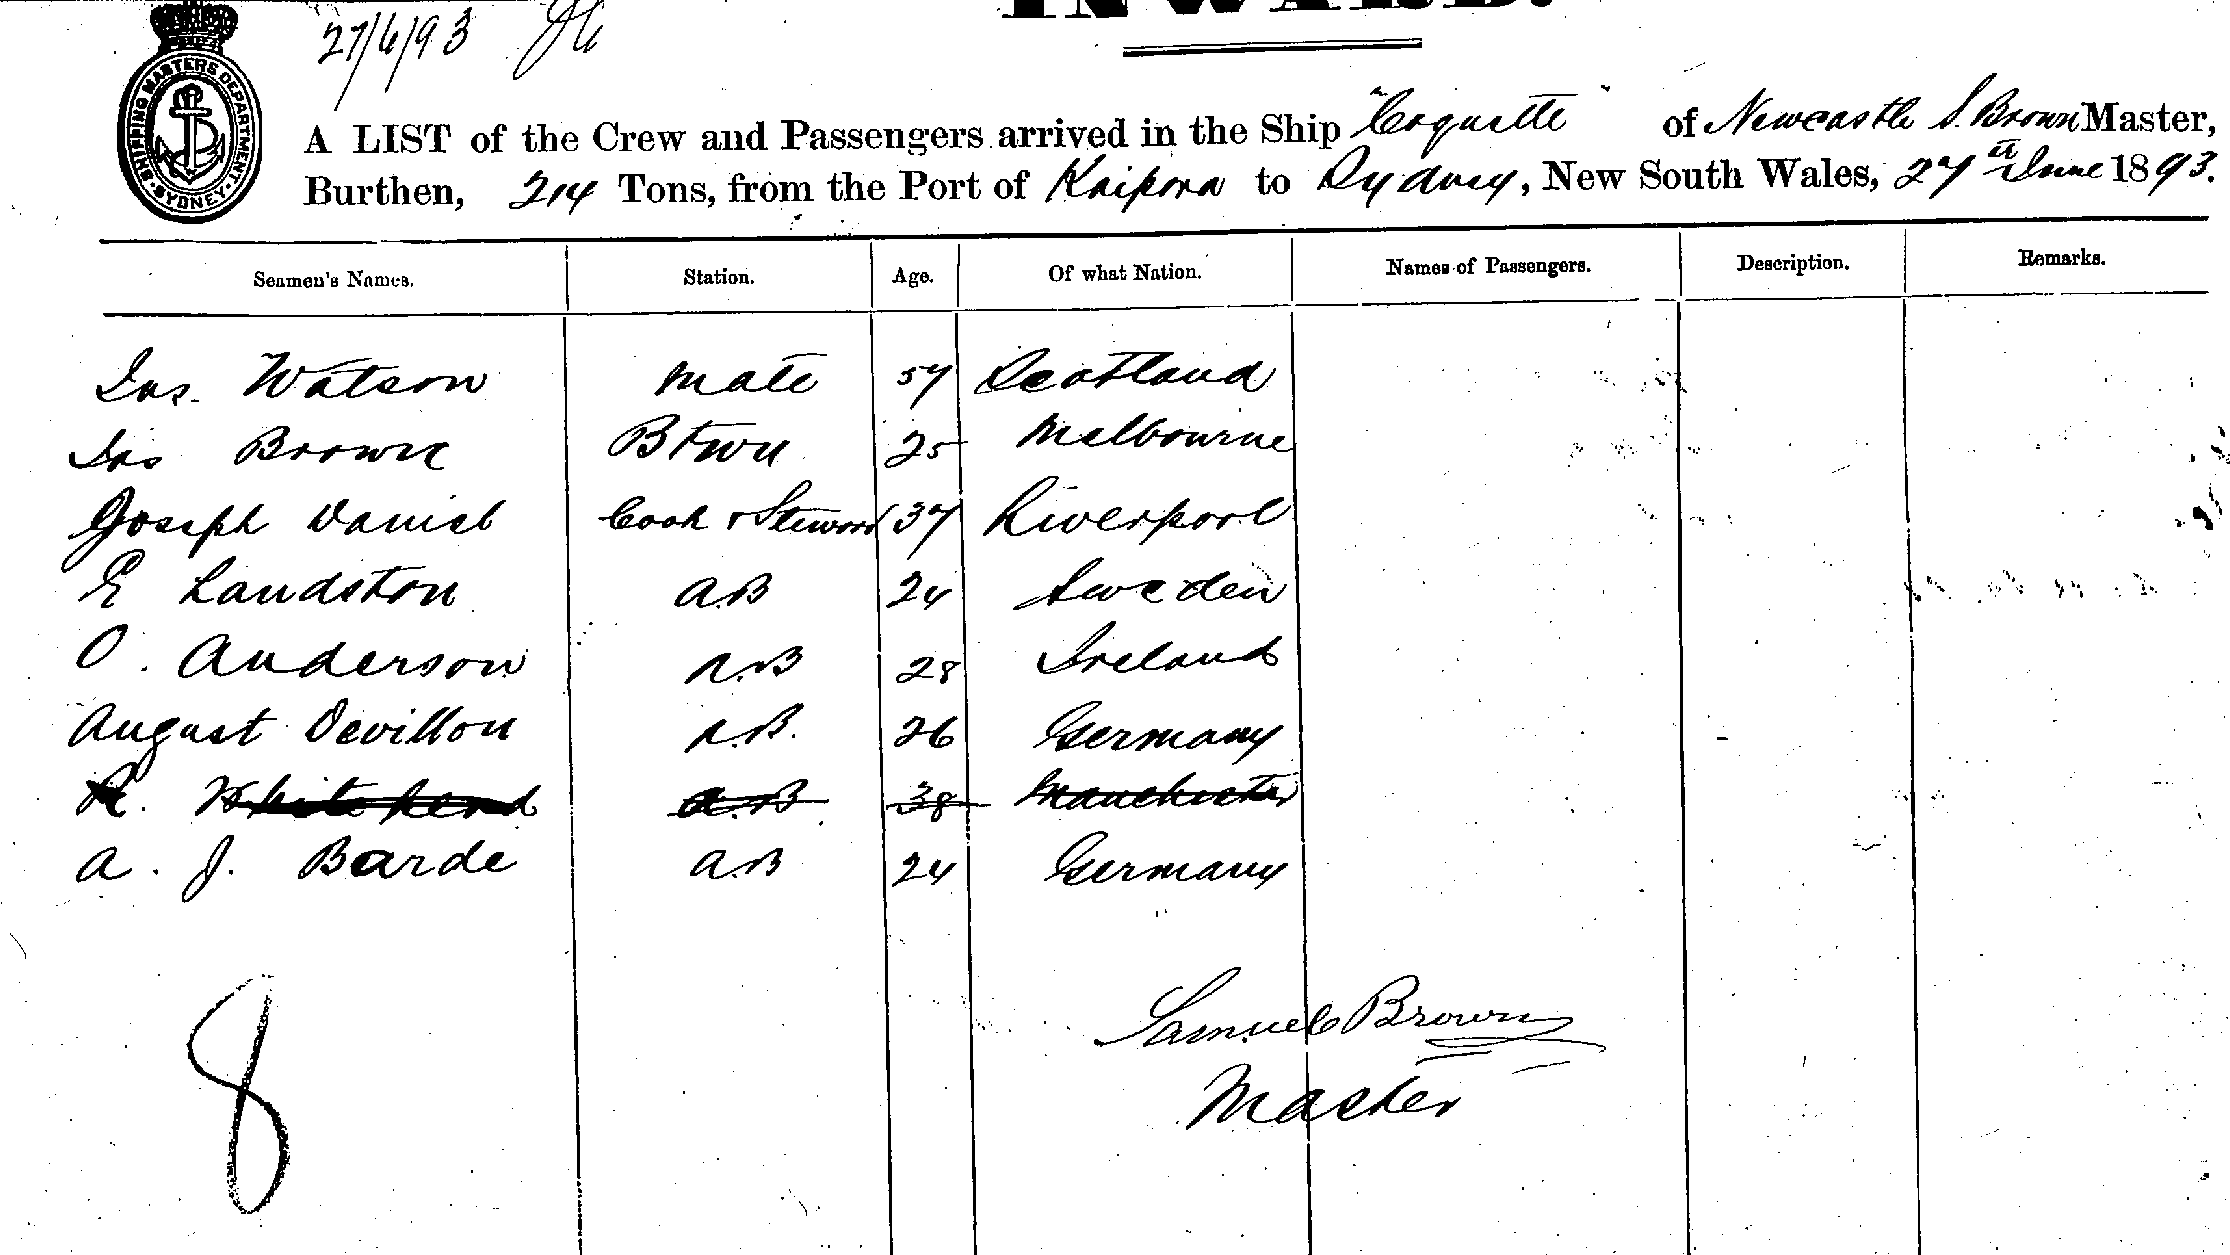 INWARD.
27/6/93
SHIPPING MASTERS DEPARTMENT SYDNEY
A LIST of the Crew and Passengers arrived in the Ship "Coquette" of Newcastle S. Brown Master,
Burthen, 214 Tons, from the Port of Kaipara to Sydney, New South Wales, 27th June 1893.
Seamen's Names. Station. Age. Of what Nation. Names of Passengers. Description. Remarks.
Jas. Watson Mate 57 Scotland
Jas Brown Btwn 25 Melbourne
Joseph Daniel Cook & Steward 37 Liverpool
E Landston A.B 24 Sweden
O. Anderson A.B 28 Ireland
August Devillon A.B. 26 Germany
R. Whitehead A.B 38 Manchester
A. J. Barde A.B 24 Germany
8
Samuel Brown
Master